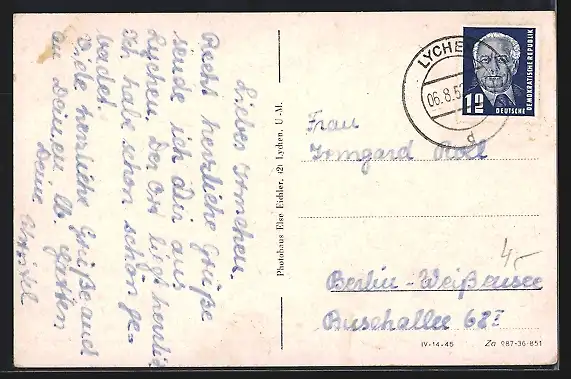 Liebes Irmchen.
Recht herzliche Grüße
sende ich Dir aus
Lychen. Der Ort liegt herrlich
Ich habe schon schön ge-
badet.
Viele herzliche Grüße auch
an Deinen lb. Gatten
Deine
Photohaus Else Eichler, (2) Lychen, U.-M.
LYCHEN
06.8.5
d
12
DEUTSCHE
DEMOKRATISCHE REPUBLIK
Frau
Irmgard
4,-
Berlin-Weißensee
Buschallee 68
IV-14-45 Za 987-36-851